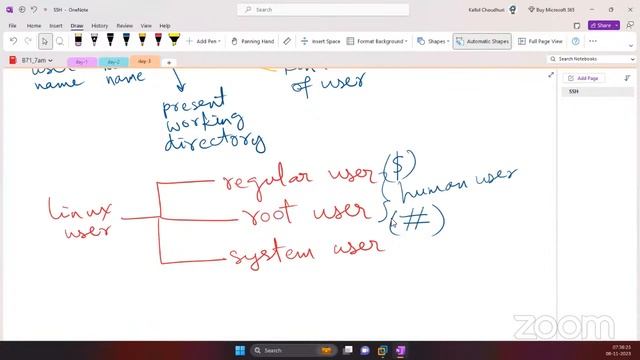 SSH - OneNote
Kallol Choudhuri
Buy Microsoft 365
File Home Insert Draw View Help
Stickers
Share
Panning Hand
Insert Space
Format Background
Automatic Shapes
Full Page View
B71_7am
day-1
day-2
day-3
Search Notebooks
Add Page
SSH
user
name name
of user
present
working
directory
regular user ($)
human user
linux
user
root user (#)
system user
Search
zoom
ENG
IN
07:38:23
08-11-2023